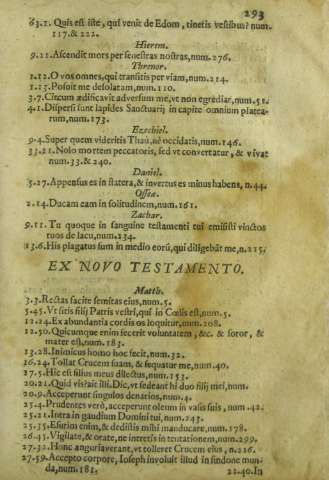 293
63.1. Quis est iste, qui venit de Edom, tinctis vestibus? num.
117. & 222.
Hierem.
9.21. Ascendit mors per fenestras nostras, num. 276.
Threnor.
1.12. O vos omnes, qui transitis per viam, num. 214.
1.13. Posuit me desolatam, num. 110.
3.7. Circum ædificavit adversum me, vt non egrediar, num. 51.
4.1. Dispersi sunt lapides Sanctuarij in capite omnium platea-
rum, num. 173.
Ezechiel.
9.4. Super quem videritis Thau, né occidatis, num. 146.
33.21. Nolo mortem peccatoris, sed vt convertatur, & vivat
num. 33. & 240.
Daniel.
5.27. Appensus es in statera, & inventus es minus habens, n. 44.
Oseæ.
2.14. Ducam eam in solitudinem, num. 161.
Zachar.
9.11. Tu quoque in sanguine testamenti tui emisisti vinctos
tuos de lacu, num. 234.
13.6. His plagatus sum in medio eorũ, qui diligebãt me, n. 215.
EX NOVO TESTAMENTO.
Matth.
3.3. Rectas facite semitas eius, num. 5.
5.45. Vt sitis filij Patris vestri, qui in Cœlis est, num. 5.
12.24. Ex abundantia cordis os loquitur, num. 208.
12.50. Quicumque enim fecerit voluntatem, &c. & soror, &
mater est, num. 183.
13.28. Inimicus homo hoc fecit, num. 32.
16.24. Tollat Crucem suam, & sequatur me, num. 40.
17.5. Hic est filius meus dilectus, num. 153.
20.21. Quid vis? ait illi. Dic, vt sedeant hi duo filij mei, num.
20.9. Acceperunt singulos denarios, num. 4.
25.4. Prudentes verò, acceperunt oleum in vasis suis, num. 42.
25.21. Intra in gaudium Domini tui, num. 243.
25.35. Esurivi enim, & dedistis mihi manducare, num. 178.
26.41. Vigilate, & orate, ne intretis in tentationem, num. 299.
27.32. Hunc angariaverunt, vt tolleret Crucem eius, n. 216.
27.59. Accepto corpore, Ioseph involuit illud in sindone mun-
da, num. 183.
22.40. In